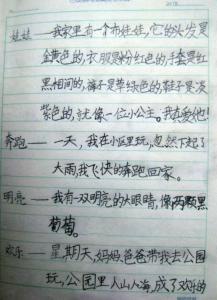 娃娃——我家里有个布娃娃，它的头发是
金黄色的，衣服是粉红色的，手套是红
黑相间的，裤子是草绿色的，鞋子是淡
紫色的，就像一位小公主。我真爱他！
奔跑——一天，我在小区里玩，忽然下起了
大雨，我飞快的奔跑回家。
明亮——我有一双明亮的大眼睛，像两颗黑
葡萄。
欢乐——星期天，妈妈、爸爸带我去公园
玩，公园里人山人海，成了欢乐的